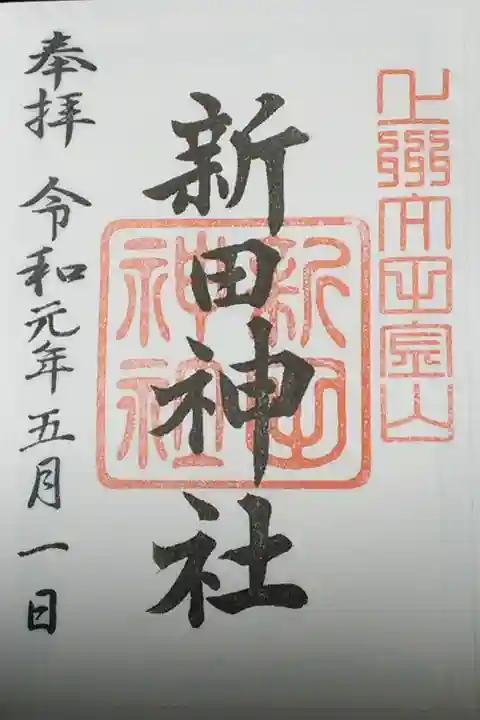 上州太田金山
新田神社
新田神社
奉拝 令和元年五月一日